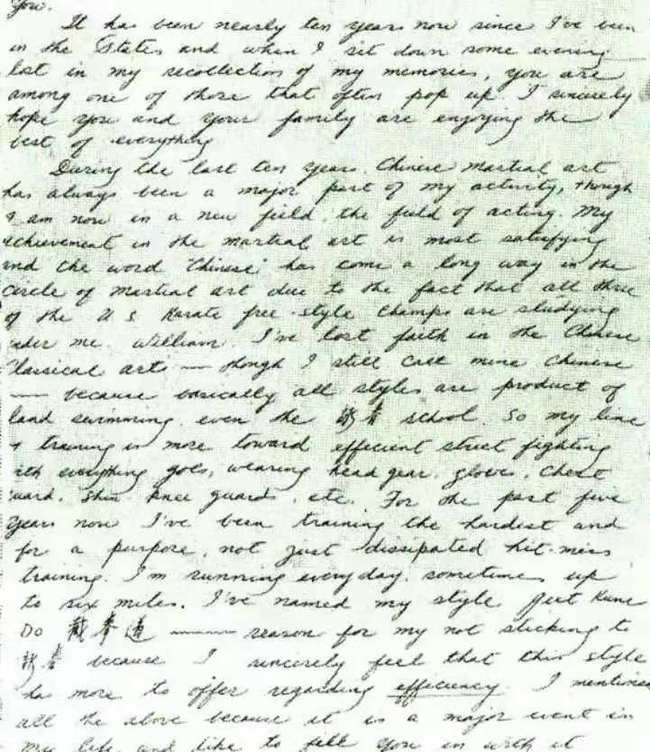 You.
It has been nearly ten years now since I've been
in the States and when I sit down some evening
lost in my recollection of my memories, you are
among one of those that often pop up. I sincerely
hope you and your family are enjoying the
best of everything
During the last ten years, Chinese Martial art
has always been a major part of my activity, though
I am now in a new field, the field of acting. My
achievement in the martial art is most satisfying
and the word "Chinese" has come a long way in the
circle of martial art due to the fact that all three
of the U.S. Karate free-style champs are studying
under me. William. I've lost faith in the Chinese
Classical arts — though I still call mine Chinese
— because basically all styles are product of
land swimming, even the 詠春 school. So my line
of training is more toward efficient street fighting
with everything goes, wearing head gear, gloves, chest
guard, shin knee guards, etc. For the past five
years now I've been training the hardest and
for a purpose, not just dissipated hit-miss
training. I'm running everyday, sometimes up
to six miles. I've named my style Jeet Kune
Do 截拳道 —— reason for my not sticking to
詠春 because I sincerely feel that this style
has more to offer regarding efficiency. I mentioned
all the above because it is a major event in
my life and like to fill you in with it